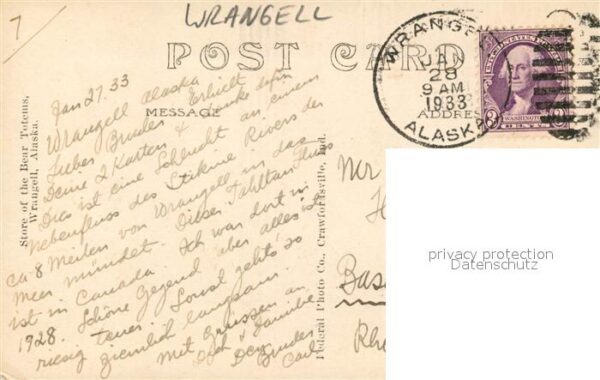 7
WRANGELL
POST CARD
MESSAGE
ADDRESS
WRANGELL
JAN
28
9 AM
1933
ALASKA
UNITED STATES POSTAGE
3
WASHINGTON
Jan 27. 33
Wrangell Alaska
Lieber Bruder. Erhielt
Deine 2 Karten & danke dafür
Dies ist eine Schlucht an einem
Nebenfluss des Stikine Rivers der
ca 8 Meilen von Wrangell in das
Meer mündet. Dieser Tahltan Fluss
ist in Canada. Ich war dort in
1928. Schöne Gegend aber alles ist
riesig teuer. Sonst geht's so
ziemlich langsam.
Mit Grüssen an
Dich & Familie
Dein Bruder
Carl
Store of the Bear Totems,
Wrangell, Alaska.
Federal Photo Co., Crawfordsville, Ind.
Mr
H
Bas
Rh
privacy protection
Datenschutz